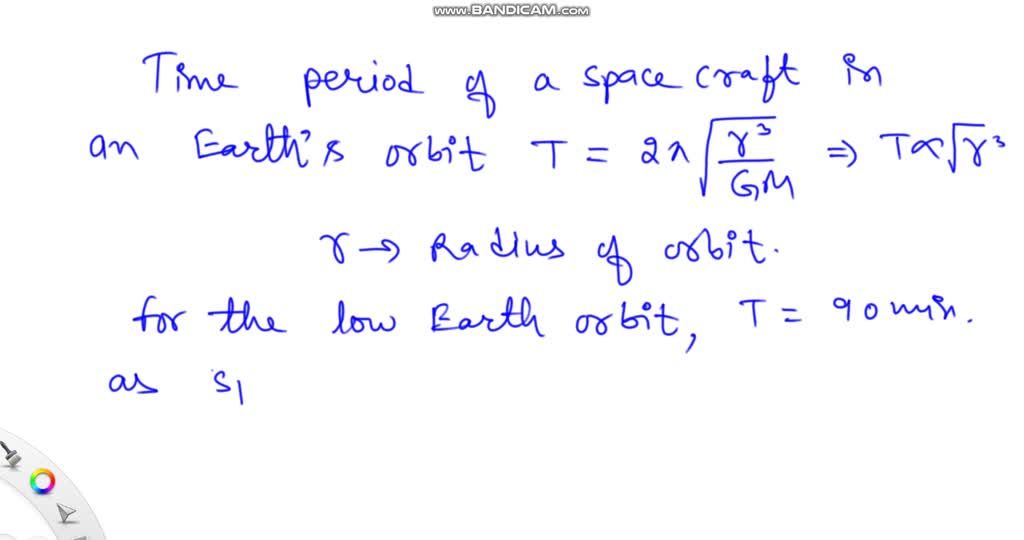 www.BANDICAM.com
Time period of a space craft in
an Earth's orbit T = 2π√(r³/GM) ⇒ T∝√r³
r → Radius of orbit.
for the low Earth orbit, T = 90 min.
as S1